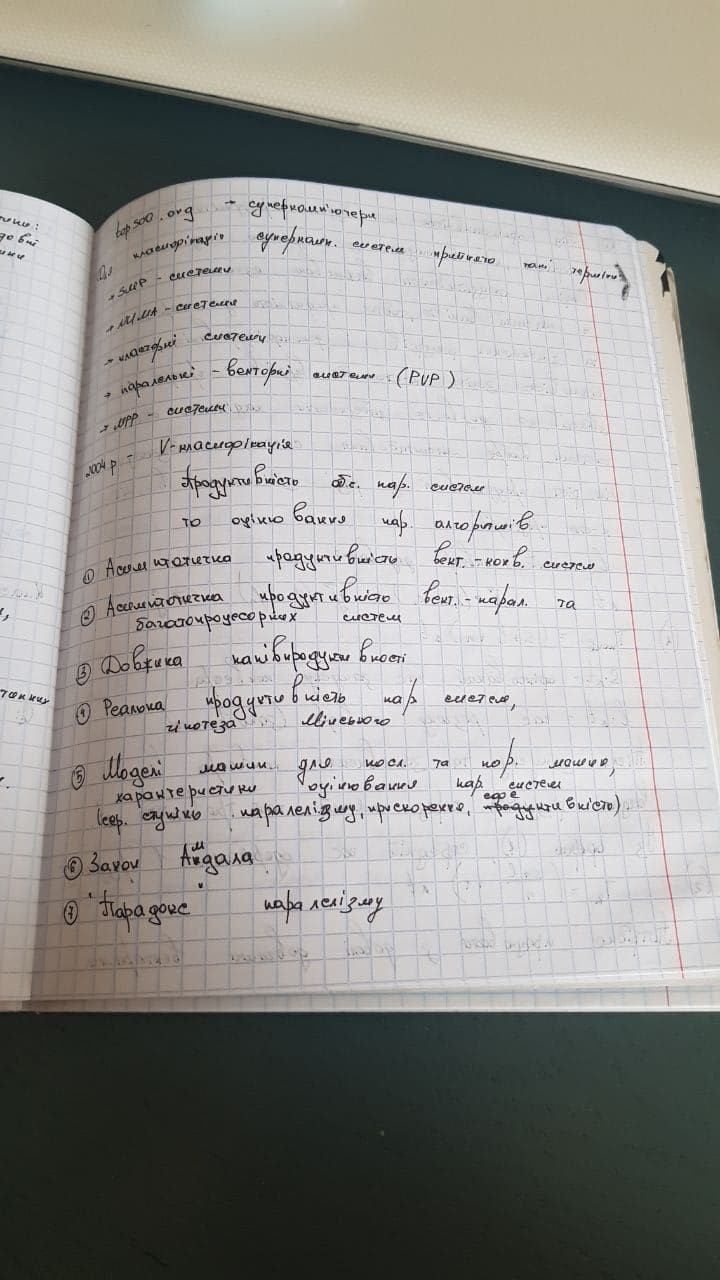 top500.org → суперкомп'ютери
Для класифікації суперкомп. систем прийнято такі терміни:
→ SMP - системи
→ NUMA - системи
→ кластерні системи
→ паралельні - векторні системи (PVP)
→ MPP - системи
2004 р - V-класифікація
Продуктивність обч. пар. систем
та оцінювання пар. алгоритмів
① Асимптотична продуктивність вект.-конв. систем
② Асимптотична продуктивність вект.-парал. та
багатопроцесорних систем
③ Довжина напівпродуктивності
④ Реальна продуктивність пар систем,
гіпотеза Мінського
⑤ Моделі машин для посл. та пар. машин,
характеристики оцінювання пар систем
(сер. ступінь паралелізму, прискорення, ефективність)
⑥ Закон Амдала
⑦ "Парадокс" паралелізму